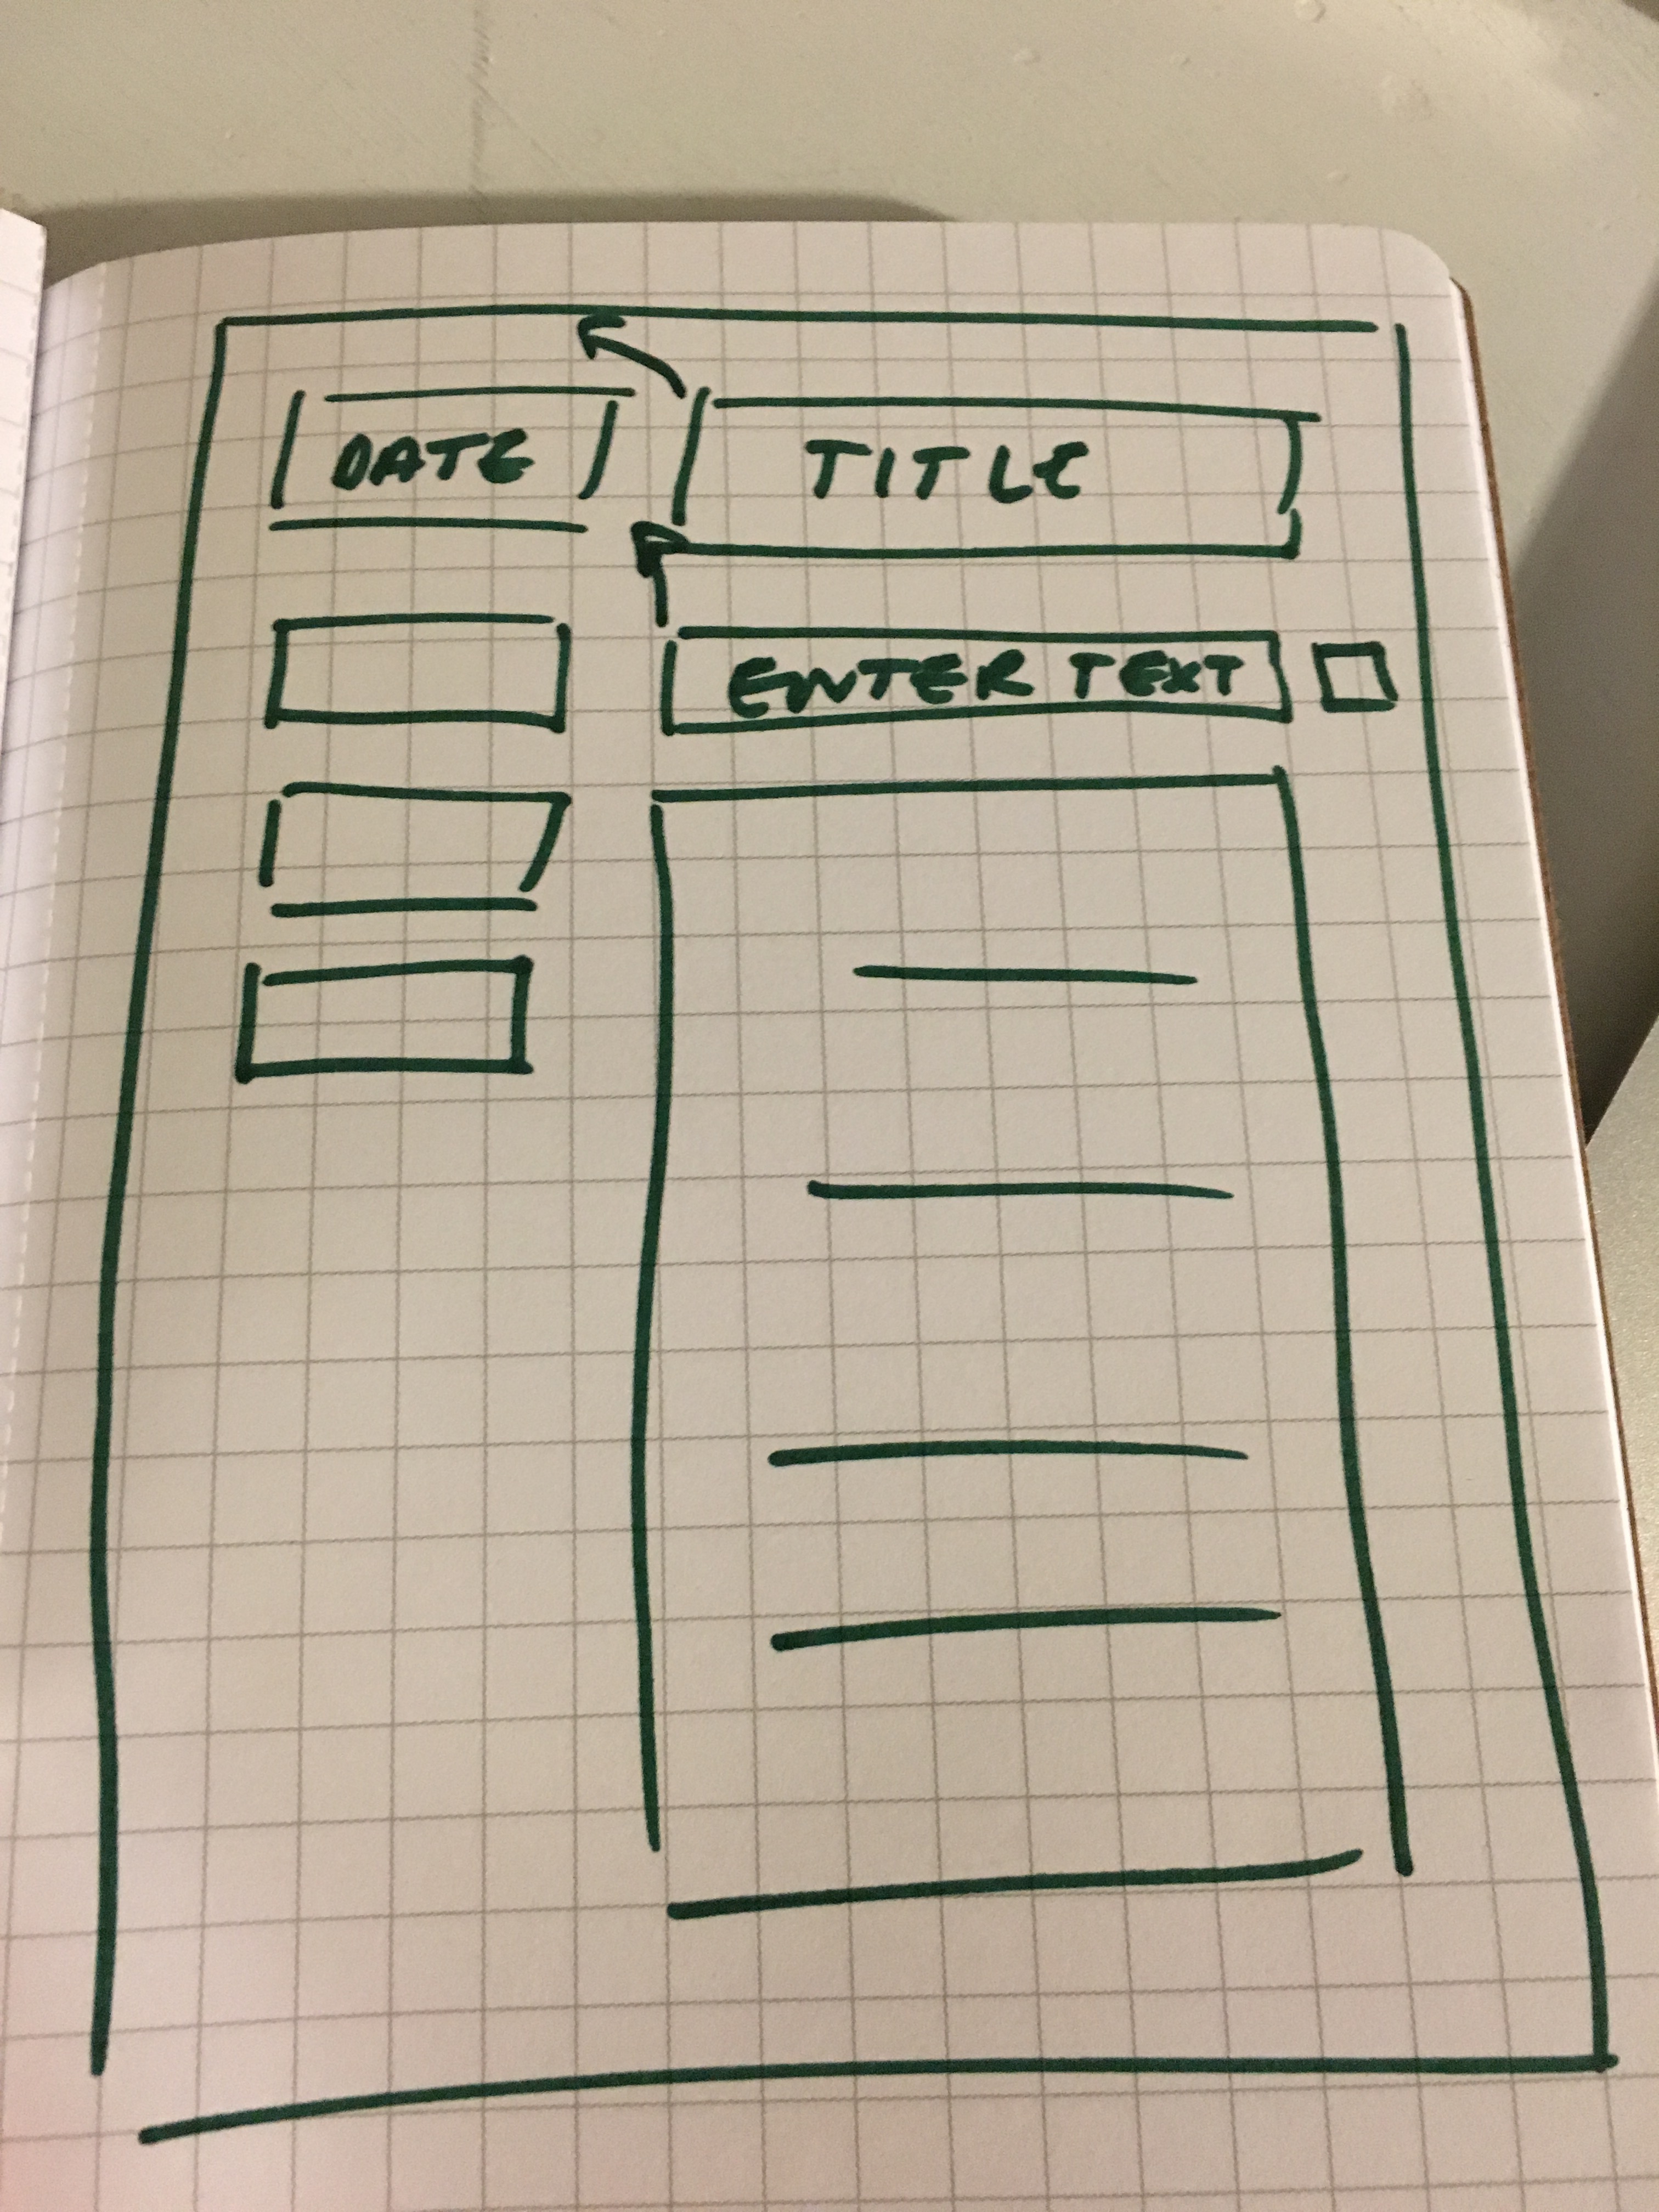 DATE
TITLE
ENTER TEXT